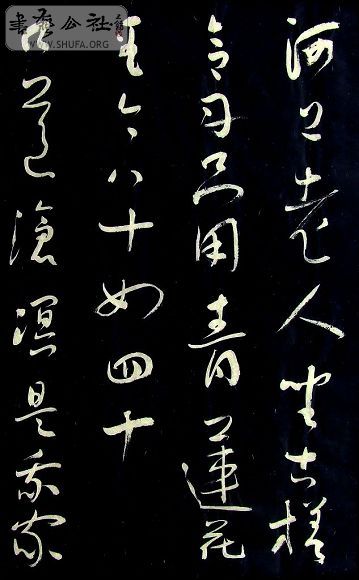 河上老人坐古槎
合丹只用青蓮花
至今八十如四十
口道滄溟是我家
書法公社
WWW.SHUFA.ORG